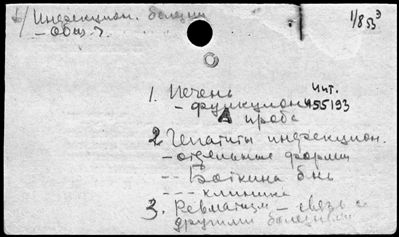 б) Инфекцион. болезни
- Общ. ?
1/8 53³
1. Печень Чит.
- функцион. 455193
А проба
2. Гепатиты инфекцион.
- отдельные формы
-- Боткина б-нь
--- клиника
3. Ревматизм - связь с
другими болезнями